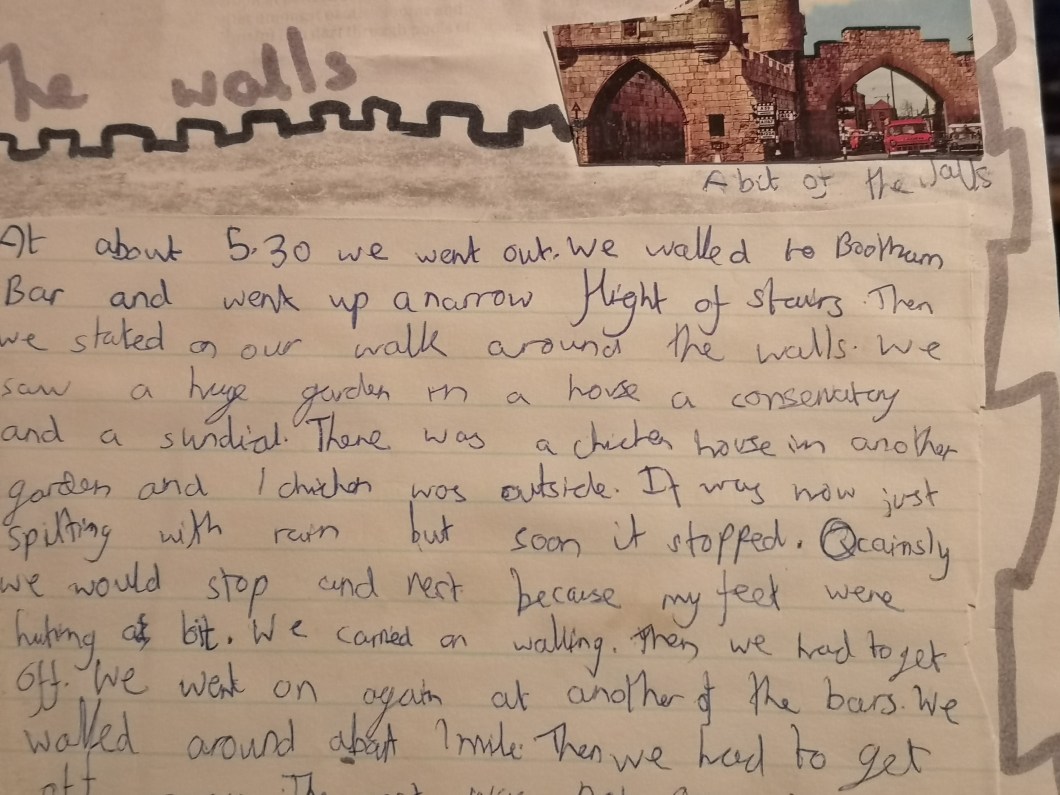 The walls
A bit of the Walls
At about 5.30 we went out. We walked to Bootham
Bar and went up a narrow flight of stairs. Then
we stated on our walk around the walls. We
saw a huge garden in a house a conservatory
and a sundial. There was a chicken house in another
garden and 1 chicken was outside. It was now just
spitting with rain but soon it stopped. Ocainsly
we would stop and rest because my feet were
hurting a bit. We carried on walking. Then we had to get
off. We went on again at another of the bars. We
walked around about 1 mile. Then we had to get
off